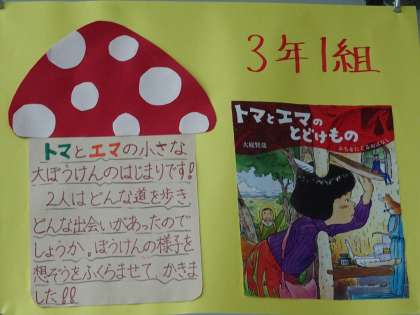 3年1組
トマとエマの小さな
大ぼうけんのはじまりです!!
2人はどんな道を歩き
どんな出会いがあったので
しょうか。ぼうけんの様子を
想ぞうをふくらませて、かきま
した!!
トマとエマの
とどけもの
大庭賢哉